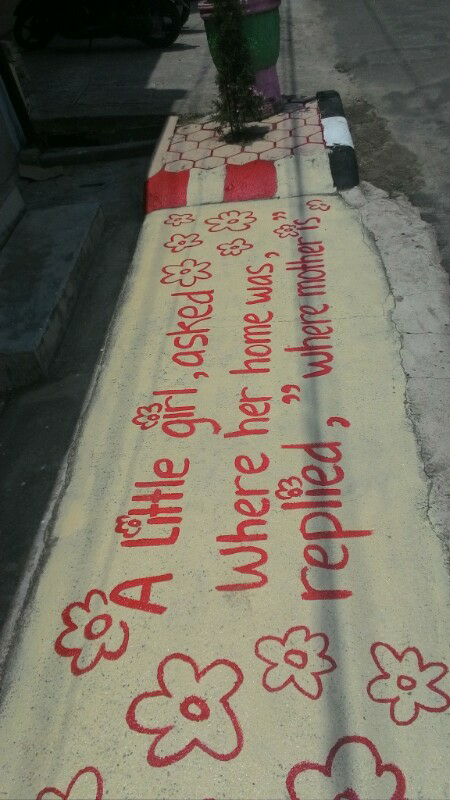 A Little girl, asked
Where her home was,
replied, ” where mother is ”